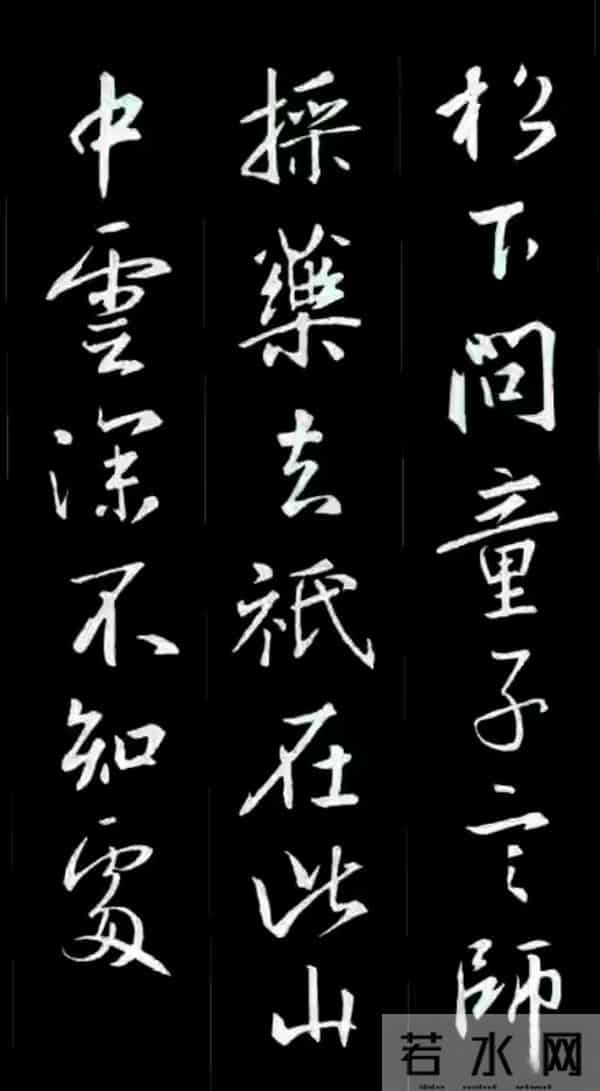 松下問童子言師
採藥去祇在此山
中雲深不知處
若水网